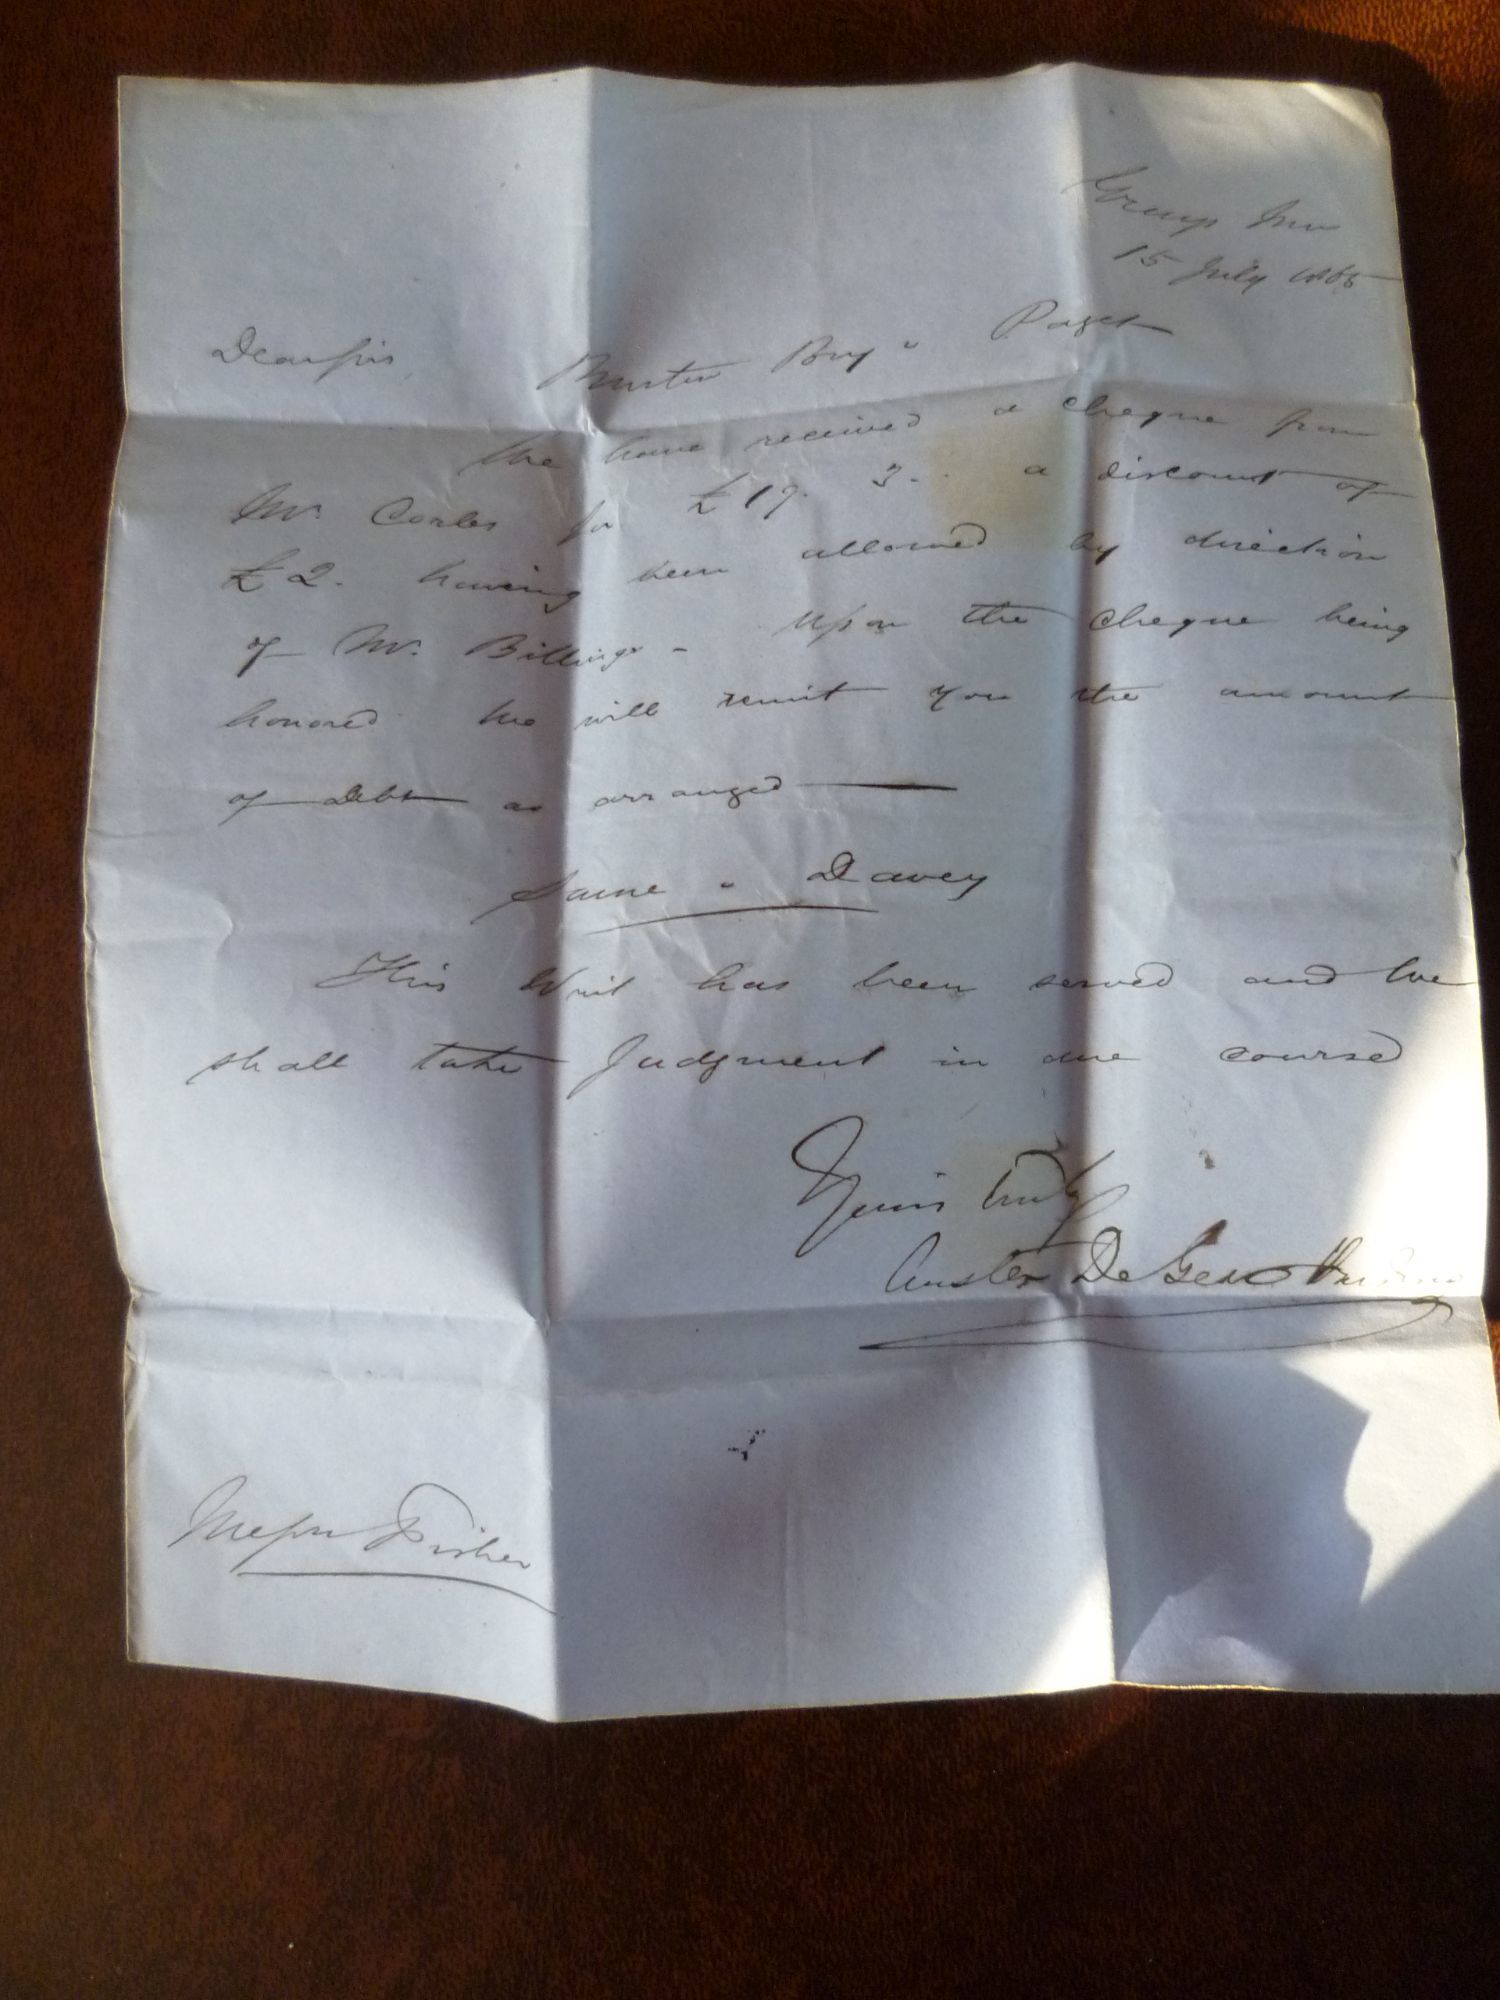 Grays Inn
15 July 1865
Dear Sirs Burton Bry v Paget
We have received a cheque from
Mr. Corles for £19. 3. - a discount of
£2. having been allowed by direction
of Mr. Billings - Upon the cheque being
honored we will remit you the amount
of Debt as arranged
Same v Davey
This Writ has been served and we
shall take Judgment in due course
Yours truly
Austen De Gex &
Messrs Fisher